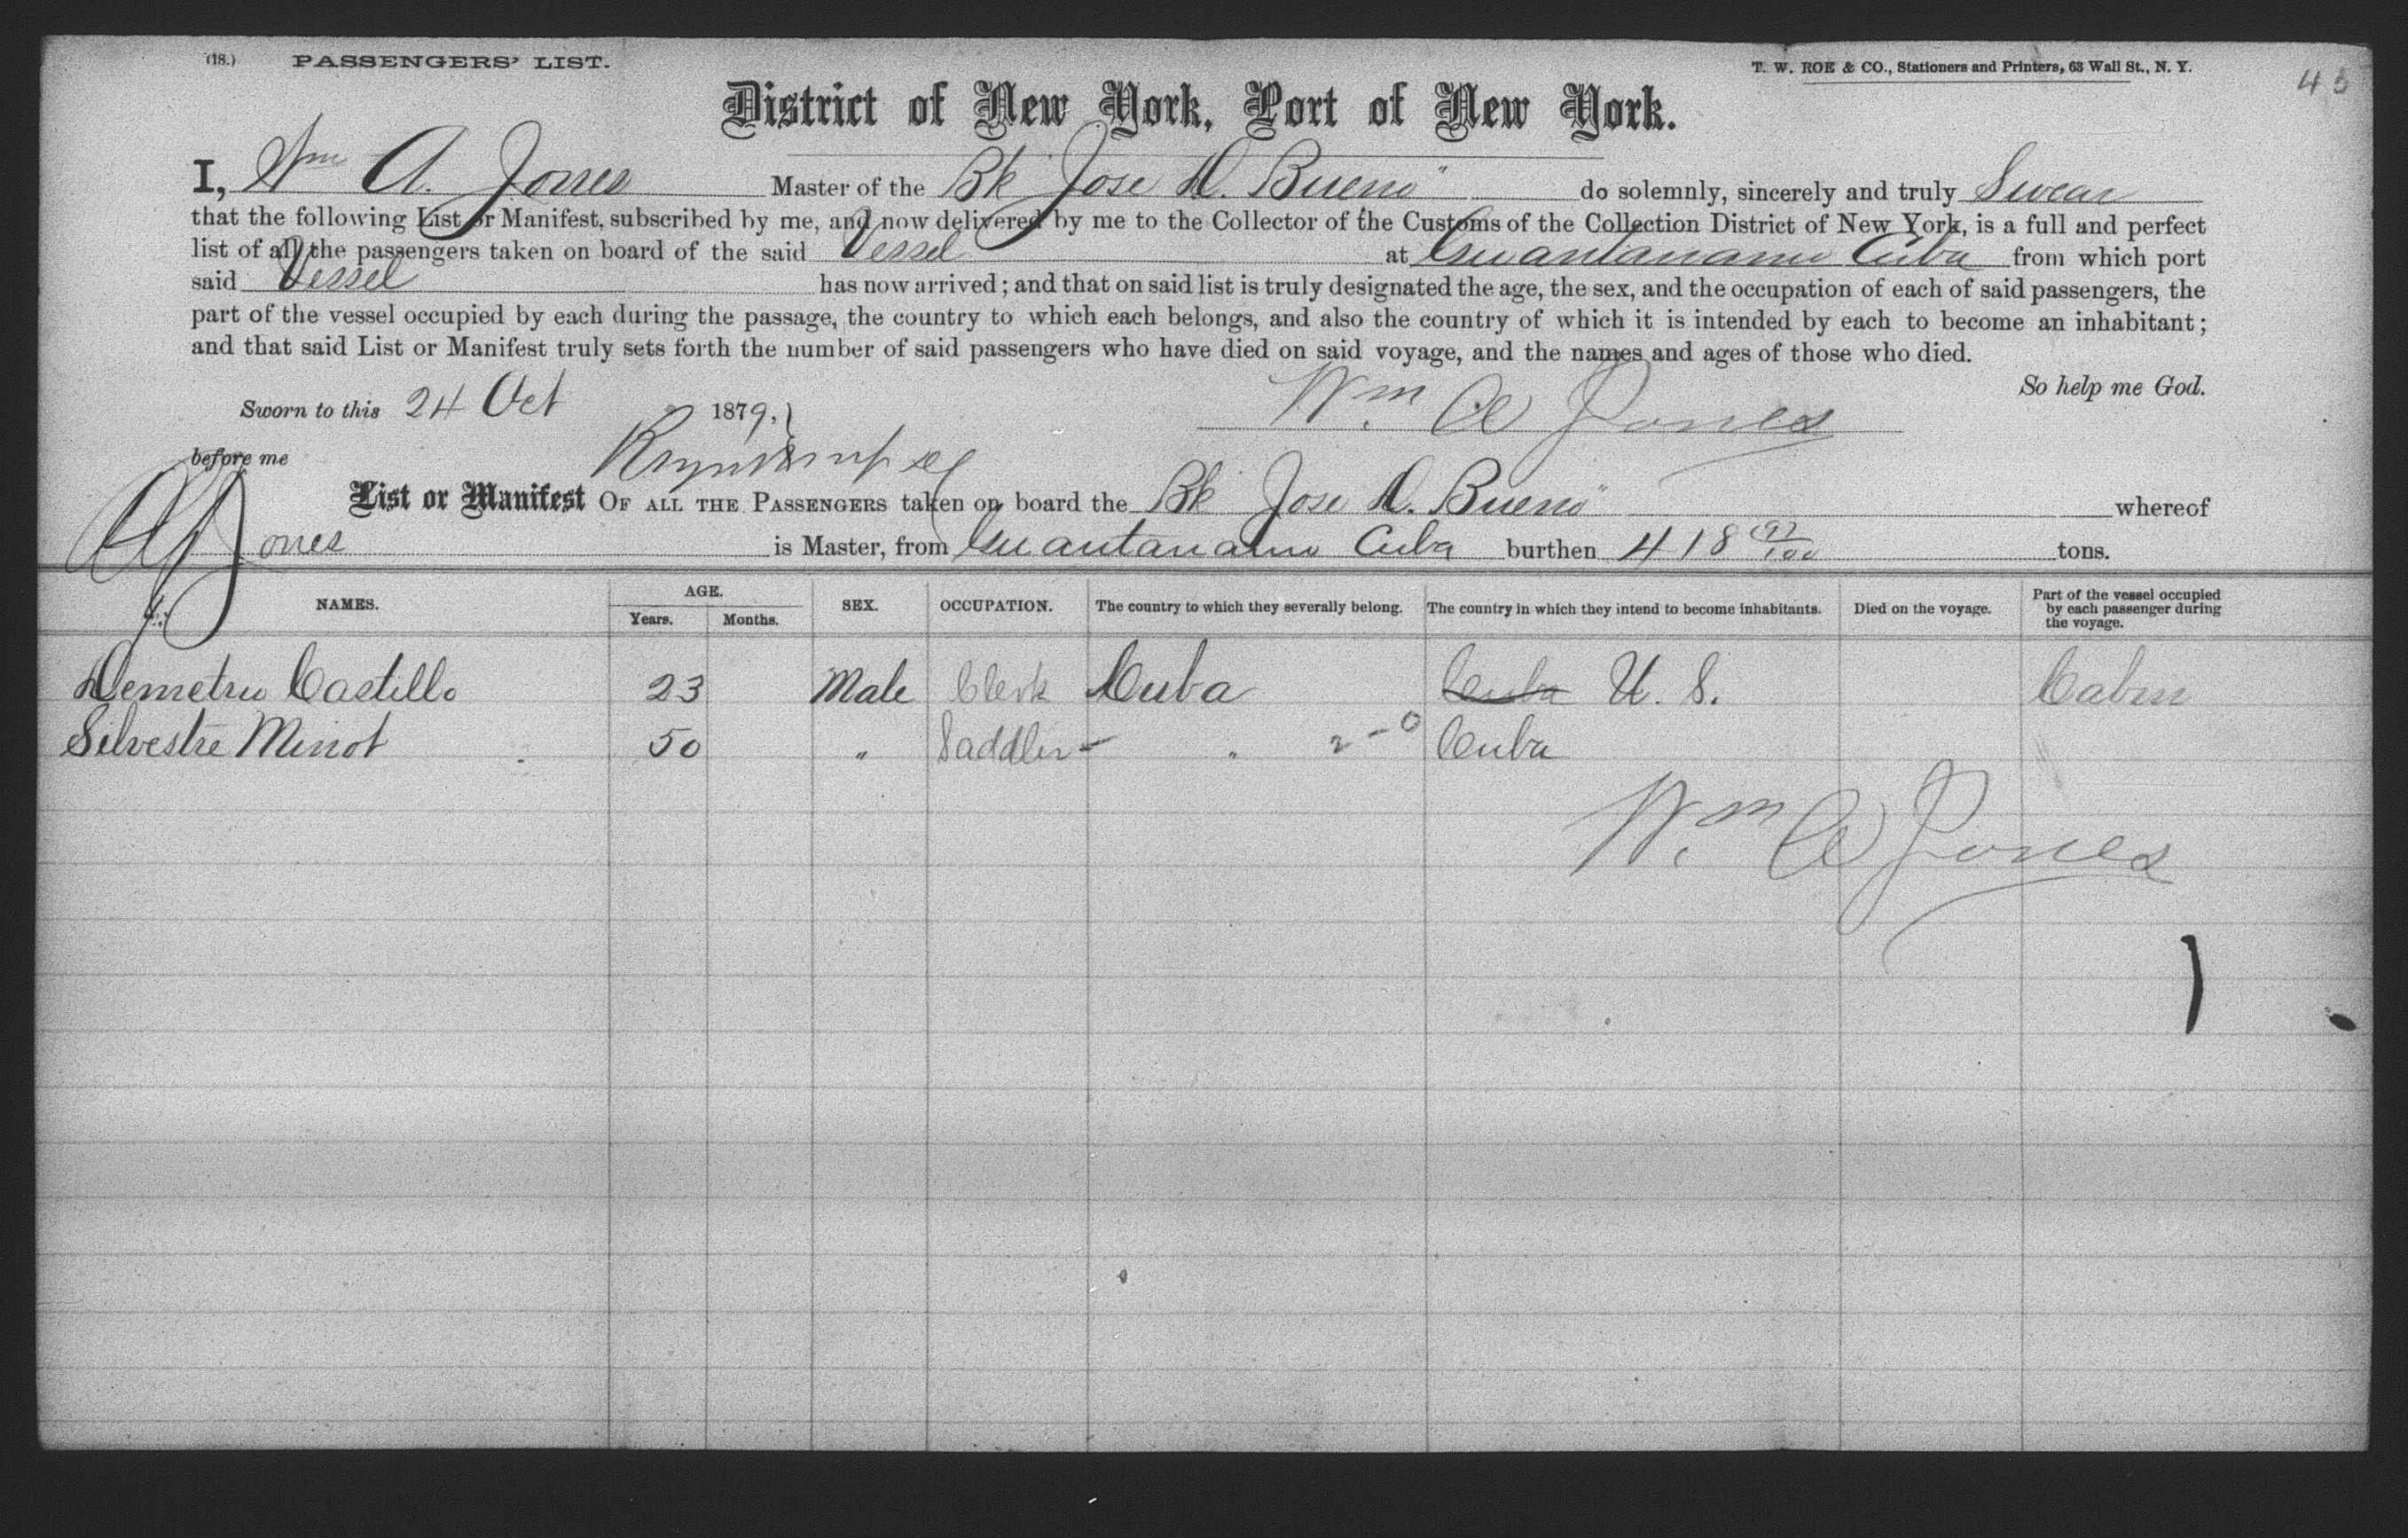 (18.) PASSENGERS' LIST.
T. W. ROE & CO., Stationers and Printers, 63 Wall St., N. Y.
45
District of New York, Port of New York.
I, Wm A. Jones Master of the Bk "Jose D. Bueno" do solemnly, sincerely and truly Swear
that the following List or Manifest, subscribed by me, and now delivered by me to the Collector of the Customs of the Collection District of New York, is a full and perfect
list of all the passengers taken on board of the said Vessel at Guantanamo Cuba from which port
said Vessel has now arrived; and that on said list is truly designated the age, the sex, and the occupation of each of said passengers, the
part of the vessel occupied by each during the passage, the country to which each belongs, and also the country of which it is intended by each to become an inhabitant;
and that said List or Manifest truly sets forth the number of said passengers who have died on said voyage, and the names and ages of those who died.
So help me God.
Sworn to this 24 Oct 1879,
Wm. A Jones
before me
List or Manifest OF ALL THE PASSENGERS taken on board the Bk Jose D. Bueno" whereof
Jones is Master, from Guantanamo Cuba burthen 418 97/100 tons.
NAMES. AGE. Years. Months. SEX. OCCUPATION. The country to which they severally belong. The country in which they intend to become inhabitants. Died on the voyage. Part of the vessel occupied by each passenger during the voyage.
Demetrio Castillo 23 Male Clerk Cuba Cuba U. S. Cabin
Silvestre Minot 50 " Saddler - " 2-0 Cuba "
Wm. A Jones